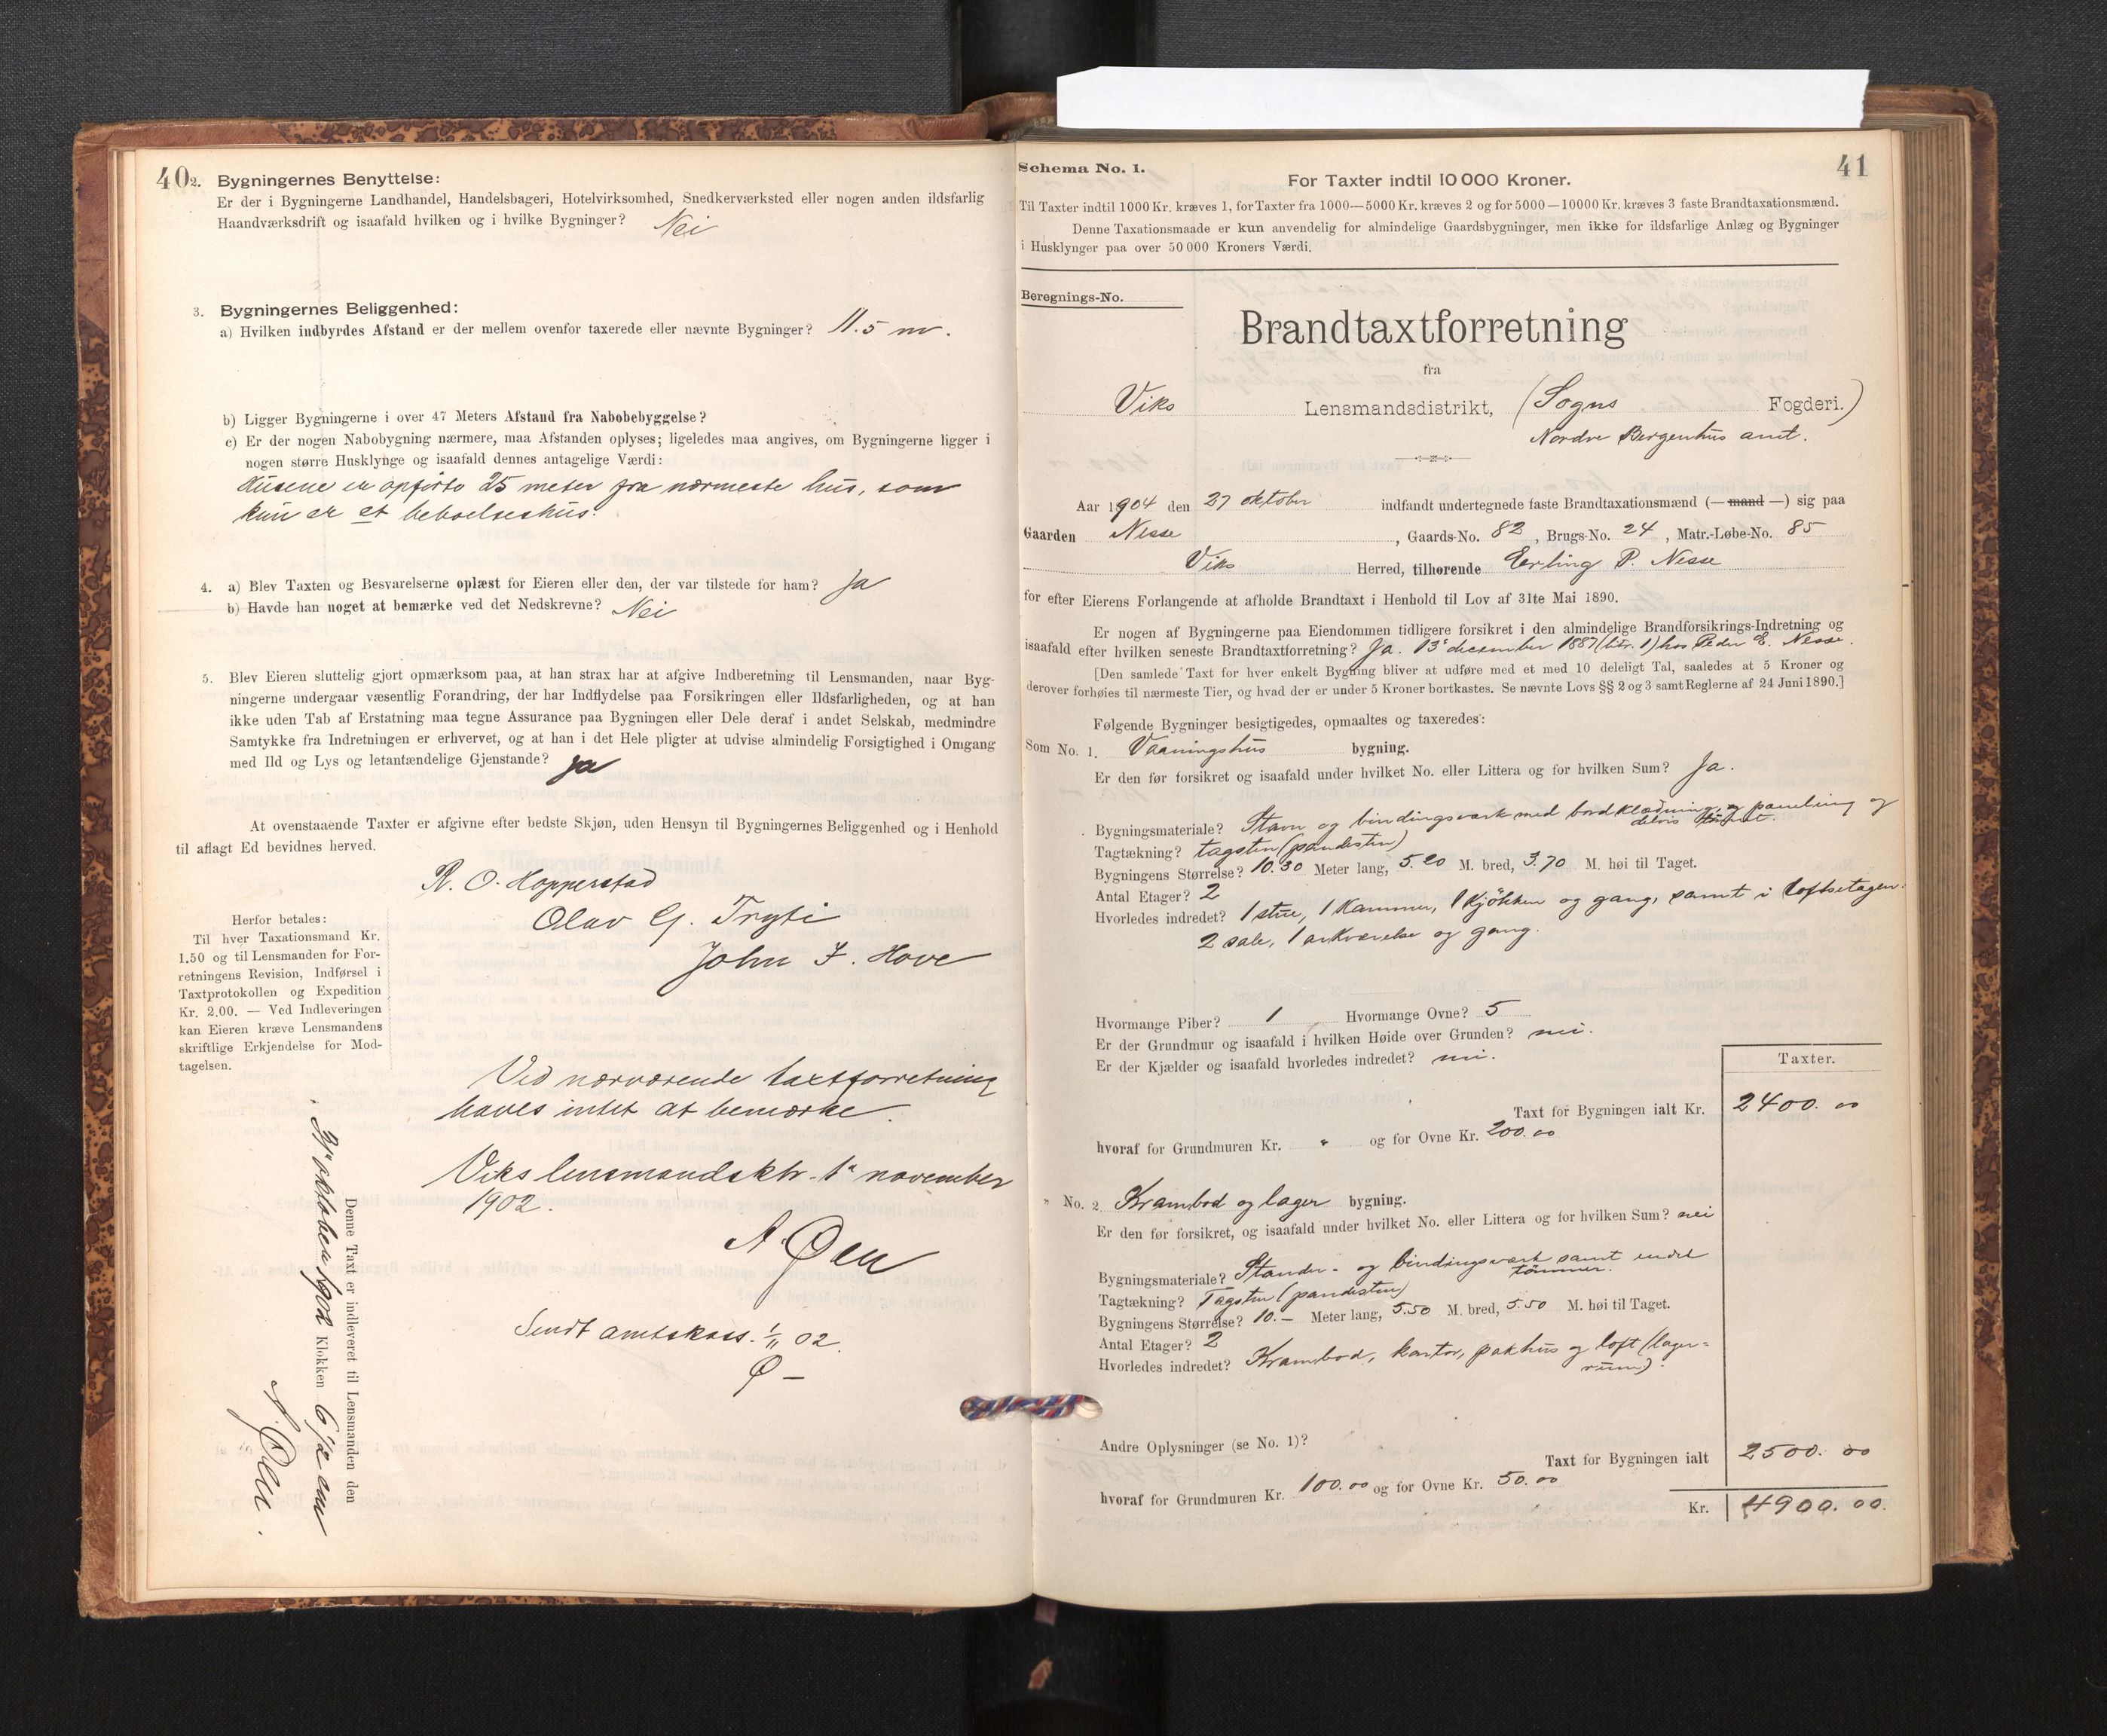 40
2. Bygningernes Benyttelse:
Er der i Bygningerne Landhandel, Handelsbageri, Hotelvirksomhed, Snedkerværksted eller nogen anden ildsfarlig
Haandværksdrift og isaafald hvilken og i hvilke Bygninger? Nei
3. Bygningernes Beliggenhed:
a) Hvilken indbyrdes Afstand er der mellem ovenfor taxerede eller nævnte Bygninger? 11.5 m.
b) Ligger Bygningerne i over 47 Meters Afstand fra Nabobebyggelse?
c) Er der nogen Nabobygning nærmere, maa Afstanden oplyses; ligeledes maa angives, om Bygningerne ligger i
nogen større Husklynge og isaafald dennes antagelige Værdi:
Husene er opførte 25 meter fra nærmeste hus, som
kun er et beboelseshus.
4. a) Blev Taxten og Besvarelserne oplæst for Eieren eller den, der var tilstede for ham? Ja
b) Havde han noget at bemærke ved det Nedskrevne? Nei
5. Blev Eieren sluttelig gjort opmærksom paa, at han strax har at afgive Indberetning til Lensmanden, naar Byg-
ningerne undergaar væsentlig Forandring, der har Indflydelse paa Forsikringen eller Ildsfarligheden, og at han
ikke uden Tab af Erstatning maa tegne Assurance paa Bygningen eller Dele deraf i andet Selskab, medmindre
Samtykke fra Indretningen er erhvervet, og at han i det Hele pligter at udvise almindelig Forsigtighed i Omgang
med Ild og Lys og letantændelige Gjenstande? Ja
At ovenstaaende Taxter er afgivne efter bedste Skjøn, uden Hensyn til Bygningernes Beliggenhed og i Henhold
til aflagt Ed bevidnes herved.
R. O. Hopperstad
Olav G. Tryti
John I. Hove
Herfor betales:
Til hver Taxationsmand Kr.
1.50 og til Lensmanden for For-
retningens Revision, Indførsel i
Taxtprotokollen og Expedition
Kr. 2.00. — Ved Indleveringen
kan Eieren kræve Lensmandens
skriftlige Erkjendelse for Mod-
tagelsen.
Ved nærværende taxtforretning
haves intet at bemærke.
Viks lensmandsktr. 1ste november
1902.
A Øen
Sendt amtskass. 1/11 02.
Ø—
Denne Taxt er indleveret til Lensmanden den
oktober 1902 Klokken 6 1/2 em
A. Øen.
41
Schema No. 1.
For Taxter indtil 10 000 Kroner.
Til Taxter indtil 1000 Kr. kræves 1, for Taxter fra 1000—5000 Kr. kræves 2 og for 5000—10000 Kr. kræves 3 faste Brandtaxationsmænd.
Denne Taxationsmaade er kun anvendelig for almindelige Gaardsbygninger, men ikke for ildsfarlige Anlæg og Bygninger
i Husklynger paa over 50 000 Kroners Værdi.
Beregnings-No.
Brandtaxtforretning
fra
Viks Lensmandsdistrikt, (Sogns Fogderi.)
Nordre Bergenhus amt.
Aar 1904 den 27 oktober indfandt undertegnede faste Brandtaxationsmænd (—mand —) sig paa
Gaarden Nesse, Gaards-No. 82, Brugs-No. 24, Matr.-Løbe-No. 85
Viks Herred, tilhørende Erling P. Nesse
for efter Eierens Forlangende at afholde Brandtaxt i Henhold til Lov af 31te Mai 1890.
Er nogen af Bygningerne paa Eiendommen tidligere forsikret i den almindelige Brandforsikrings-Indretning og
isaafald efter hvilken seneste Brandtaxtforretning? Ja. 13de december 1887 (litr. 1) hos Peder E. Nesse.
[Den samlede Taxt for hver enkelt Bygning bliver at udføre med et med 10 deleligt Tal, saaledes at 5 Kroner og
derover forhøies til nærmeste Tier, og hvad der er under 5 Kroner bortkastes. Se nævnte Lovs §§ 2 og 3 samt Reglerne af 24 Juni 1890.]
Følgende Bygninger besigtigedes, opmaaltes og taxeredes:
Som No. 1. Vaaningshus bygning.
Er den før forsikret og isaafald under hvilket No. eller Littera og for hvilken Sum? Ja.
Bygningsmateriale? Stavn og bindingsværk med bordklædning og paneling og
delvis
Tagtækning? tagsten (pandesten)
Bygningens Størrelse? 10.30 Meter lang, 5.20 M. bred, 3.70 M. høi til Taget.
Antal Etager? 2
Hvorledes indredet? 1 stue, 1 kammer, 1 kjøkken og gang, samt i loftsetagen
2 sale, 1 arkværelse og gang.
Hvormange Piber? 1 Hvormange Ovne? 5
Er der Grundmur og isaafald i hvilken Høide over Grunden? nei.
Er der Kjælder og isaafald hvorledes indredet? nei.
Taxter.
Taxt for Bygningen ialt Kr. 2400. 00
hvoraf for Grundmuren Kr. " og for Ovne Kr. 200. 00
" No. 2 Krambod og lager bygning.
Er den før forsikret, og isaafald under hvilket No. eller Littera og for hvilken Sum? nei
Bygningsmateriale? Stander- og bindingsværk samt endel
tømmer.
Tagtækning? Tagsten (pandesten)
Bygningens Størrelse? 10.— Meter lang, 5.50 M. bred, 5.50 M. høi til Taget.
Antal Etager? 2
Hvorledes indredet? Krambod, kontor, pakhus og loft (lager-
rum).
Andre Oplysninger (se No. 1)?
Taxt for Bygningen ialt 2500. 00
hvoraf for Grundmuren Kr. 100. 00 og for Ovne Kr. 50. 00
Kr. 4900. 00.